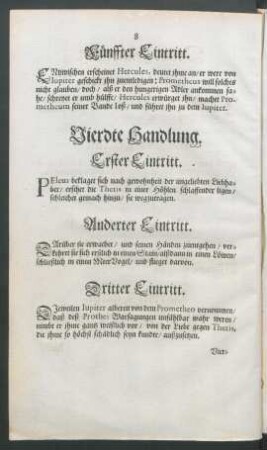 8
Fünffter Eintritt.
ENtzwischen erscheinet Hercules, deutet ihme an/ er were von
Jupiter geschickt ihn zuerledigen; Prometheus will solches
nicht glauben/ doch/ als er den hungerigen Adler ankommen sa-
he/ schreyet er und hülffe/ Hercules erwürget ihn/ machet Pro-
metheum seiner Bande loß/ und führet ihn zu dem Jupiter.
Vierdte Handlung,
Erster Eintritt.
PEleus beklaget sich nach gewohnheit der ungeliebten Liebha-
ber/ ersihet die Thetis in einer Höhlen schlaffender ligen/
schleichet gemach hinzu/ sie wegzutragen.
Anderter Eintritt.
DArüber sie erwachet/ und seinen Händen zuentgehen/ ver-
kehret sie sich erstlich in einen Stain/ alsdann in einen Löwen/
schließlich in einen MeerVogel/ und flieget darvon.
Dritter Eintritt.
DIeweilen Jupiter allbereit von dem Prometheo vernommen/
daß deß Prothei Warsagungen unfählbar wahr weren/
nimbt er ihme gantz weißlich vor/ von der Liebe gegen Thetis,
die ihme so höchst schädlich seyn kundte/ außzusetzen.
Vier-